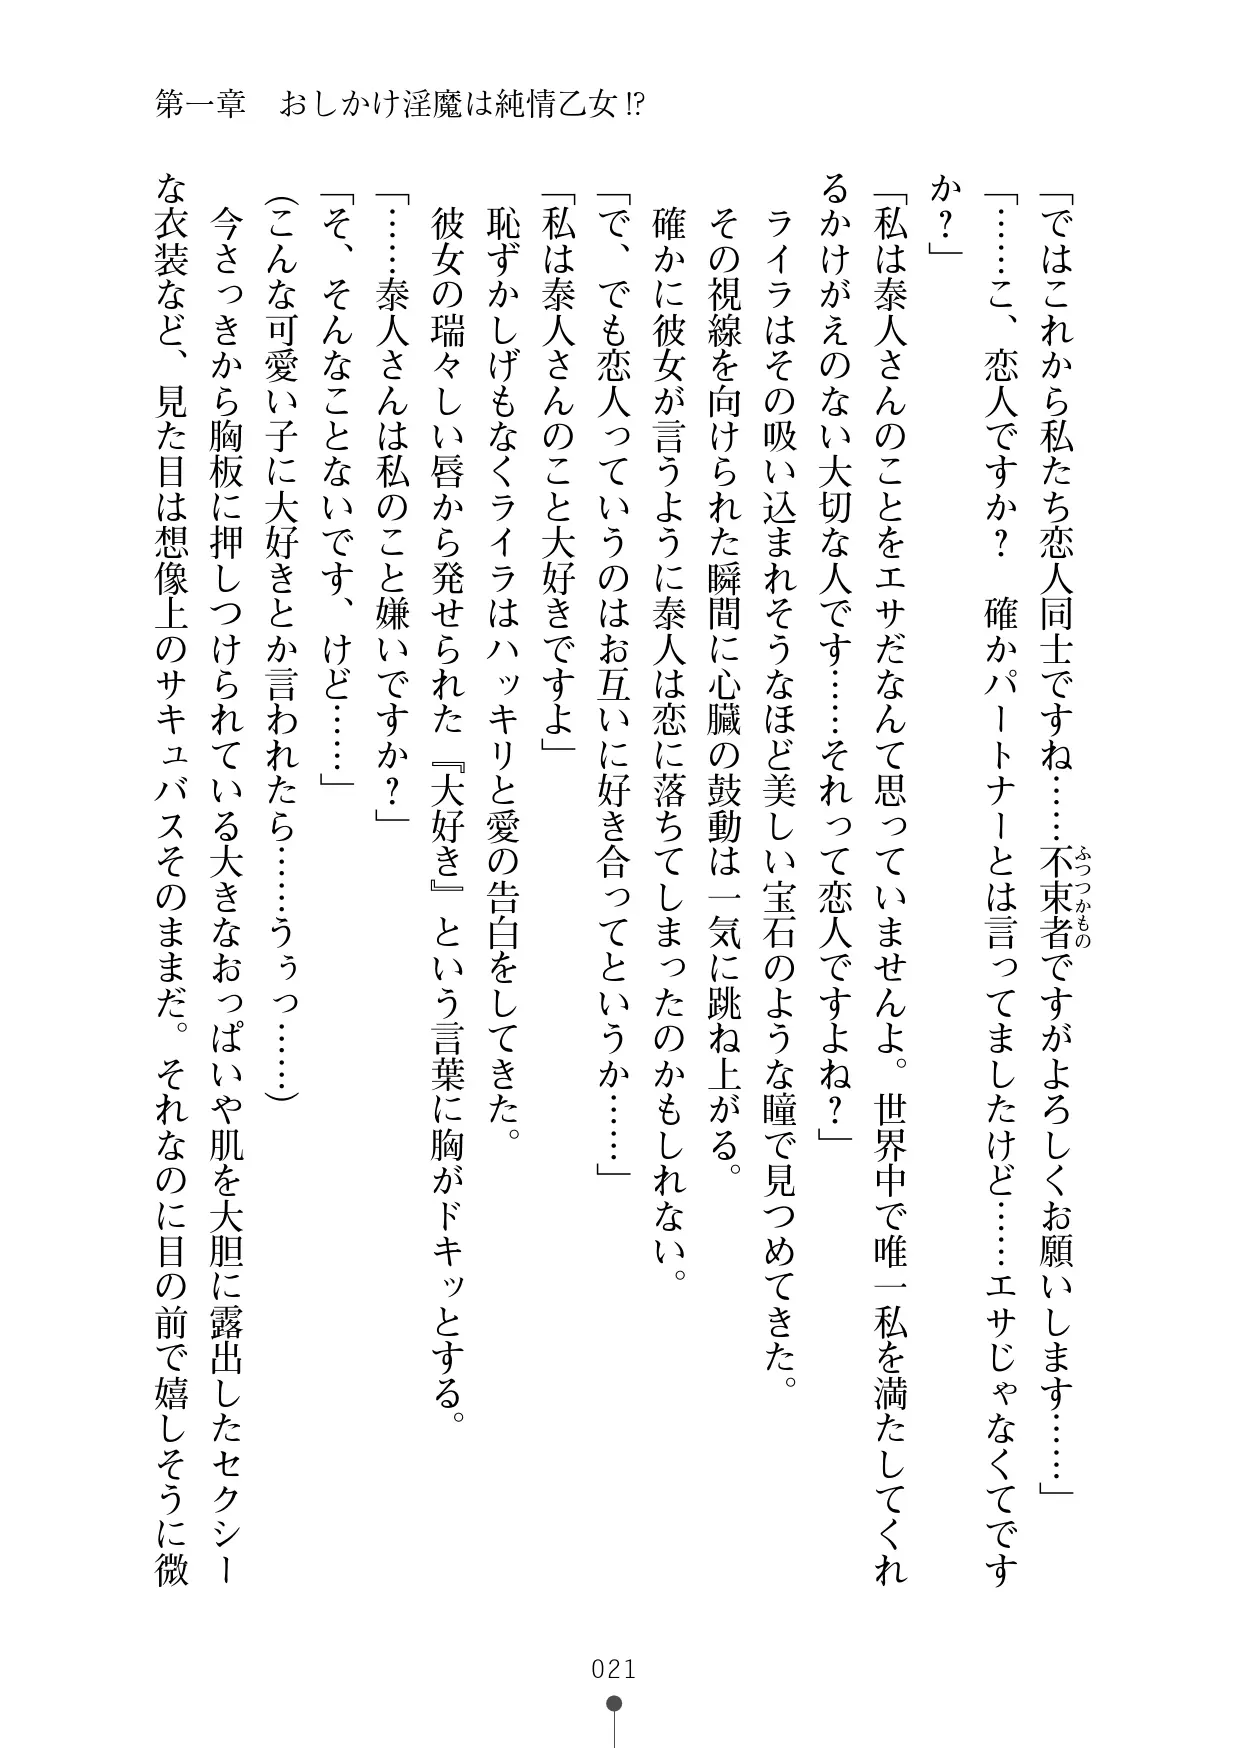 第一章　おしかけ淫魔は純情乙女!?
「ではこれから私たち恋人同士ですね……不束者ですがよろしくお願いします……」
ふつつかもの
「……こ、恋人ですか？　確かパートナーとは言ってましたけど……エサじゃなくてです
か？」
「私は泰人さんのことをエサだなんて思っていませんよ。世界中で唯一私を満たしてくれ
るかけがえのない大切な人です……それって恋人ですよね？」
ライラはその吸い込まれそうなほど美しい宝石のような瞳で見つめてきた。
その視線を向けられた瞬間に心臓の鼓動は一気に跳ね上がる。
確かに彼女が言うように泰人は恋に落ちてしまったのかもしれない。
「で、でも恋人っていうのはお互いに好き合ってというか……」
「私は泰人さんのこと大好きですよ」
恥ずかしげもなくライラはハッキリと愛の告白をしてきた。
彼女の瑞々しい唇から発せられた『大好き』という言葉に胸がドキッとする。
「……泰人さんは私のこと嫌いですか？」
「そ、そんなことないです、けど……」
（こんな可愛い子に大好きとか言われたら……うぅっ……）
今さっきから胸板に押しつけられている大きなおっぱいや肌を大胆に露出したセクシー
な衣装など、見た目は想像上のサキュバスそのままだ。それなのに目の前で嬉しそうに微
021